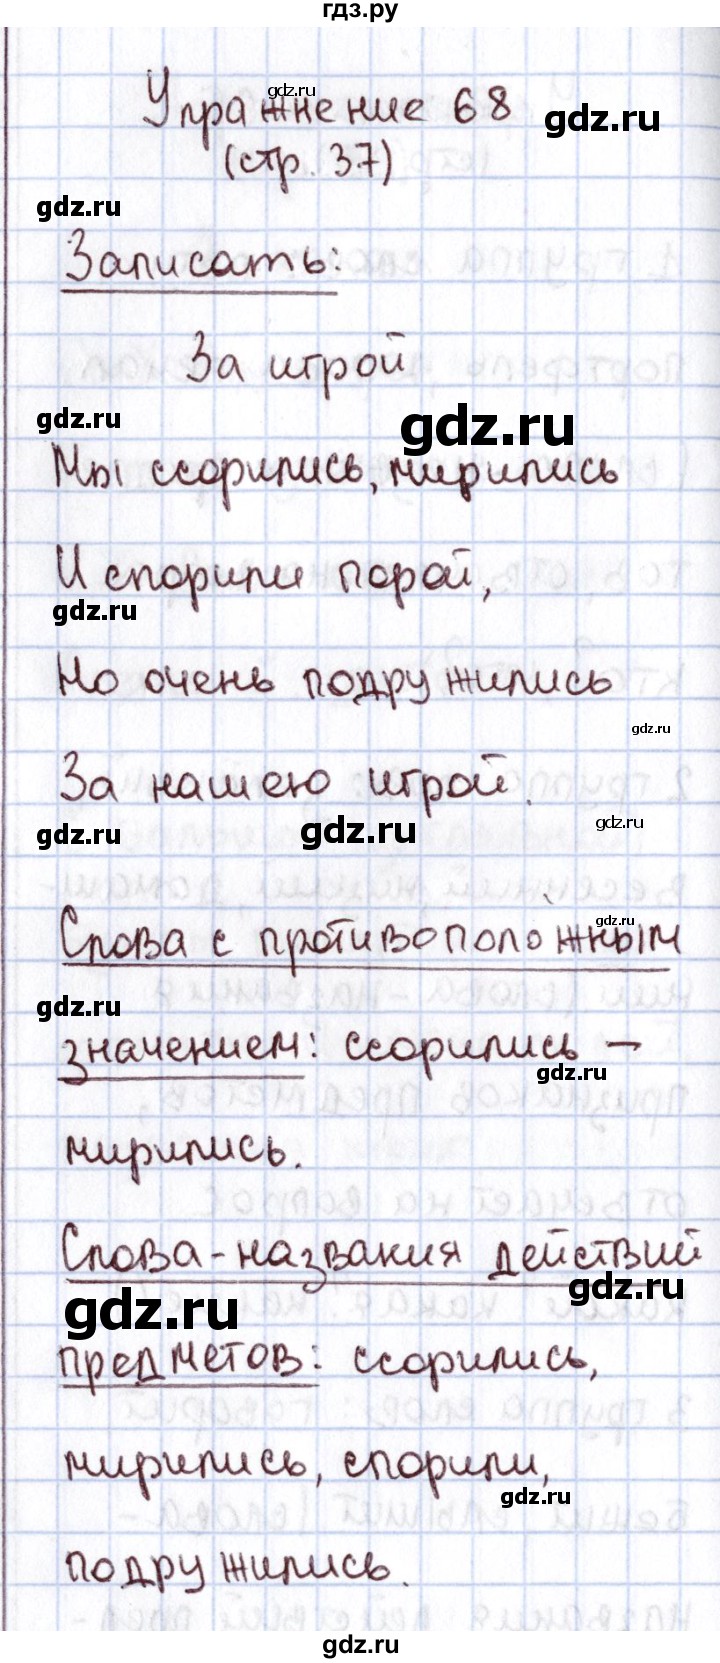 гдз.ру
gdz.ru
Упражнение 68
gdz.ru
(стр. 37)
gdz.ru
Записать:
За игрой
gdz.ru
gdz.ru
Мы ссорились, мирились
И спорили порой,
gdz.ru
Но очень подружились
gdz.ru
За нашею игрой.
gdz.ru
gdz.ru
gdz.ru
gdz.ru
Слова с противоположным
gdz.ru
значением: ссорились –
gdz.ru
мирились.
Слова-названия действий
gdz.ru
gdz.ru
предметов: ссорились,
мирились, спорили,
gdz.ru
подружились.
gdz.ru